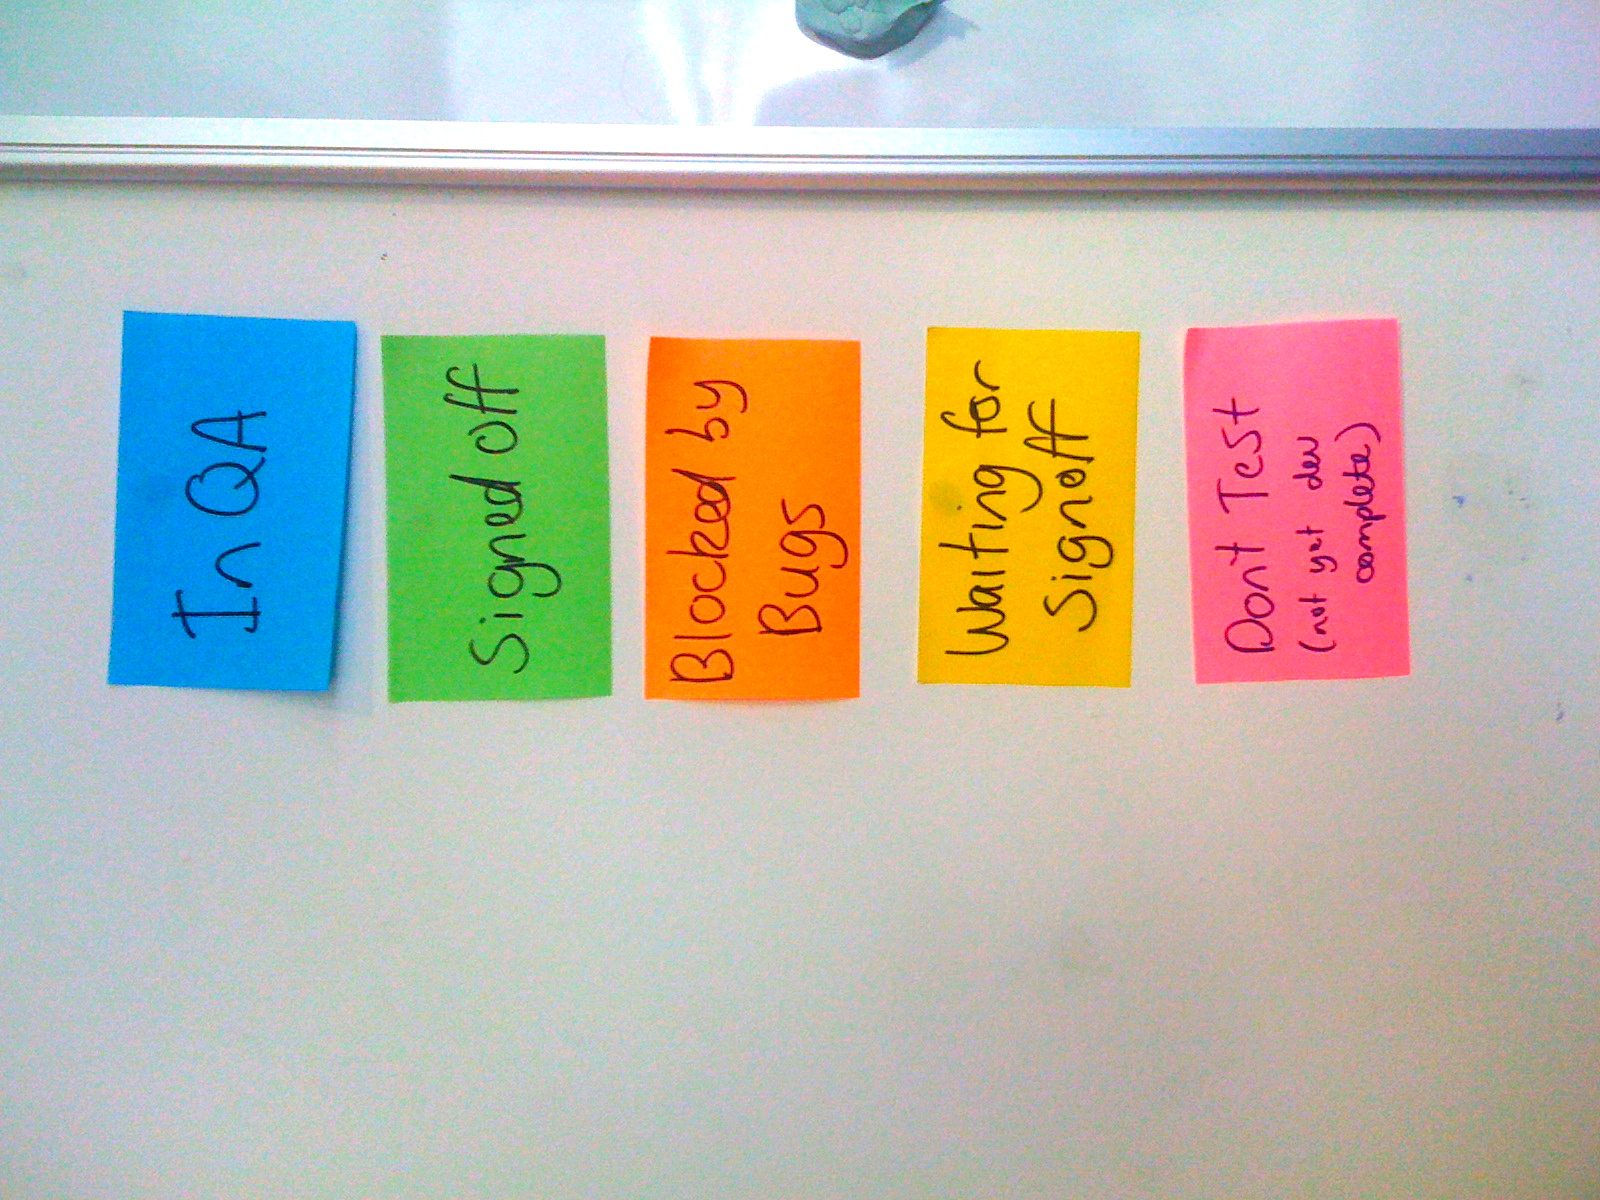 In QA
Signed off
Blocked by
Bugs
Waiting for
Signoff
Don't Test
(not yet dev
complete)